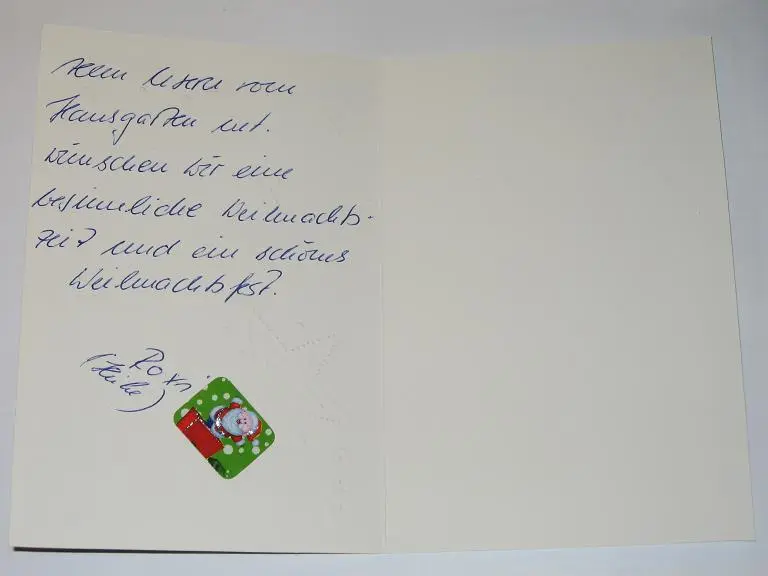 vom
Hausgarten.net.
wünschen wir eine
besinnliche Weihnachts-
zeit und ein schönes
Weihnachtsfest.
Roxi
(Heike)